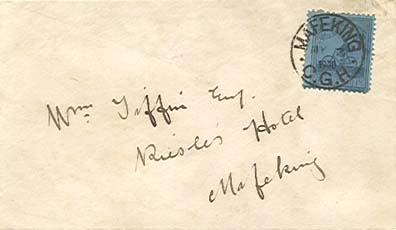 MAFEKING
C.G.H.
1900
Wm Tiffin Esq.
Riesle's Hotel
Mafeking